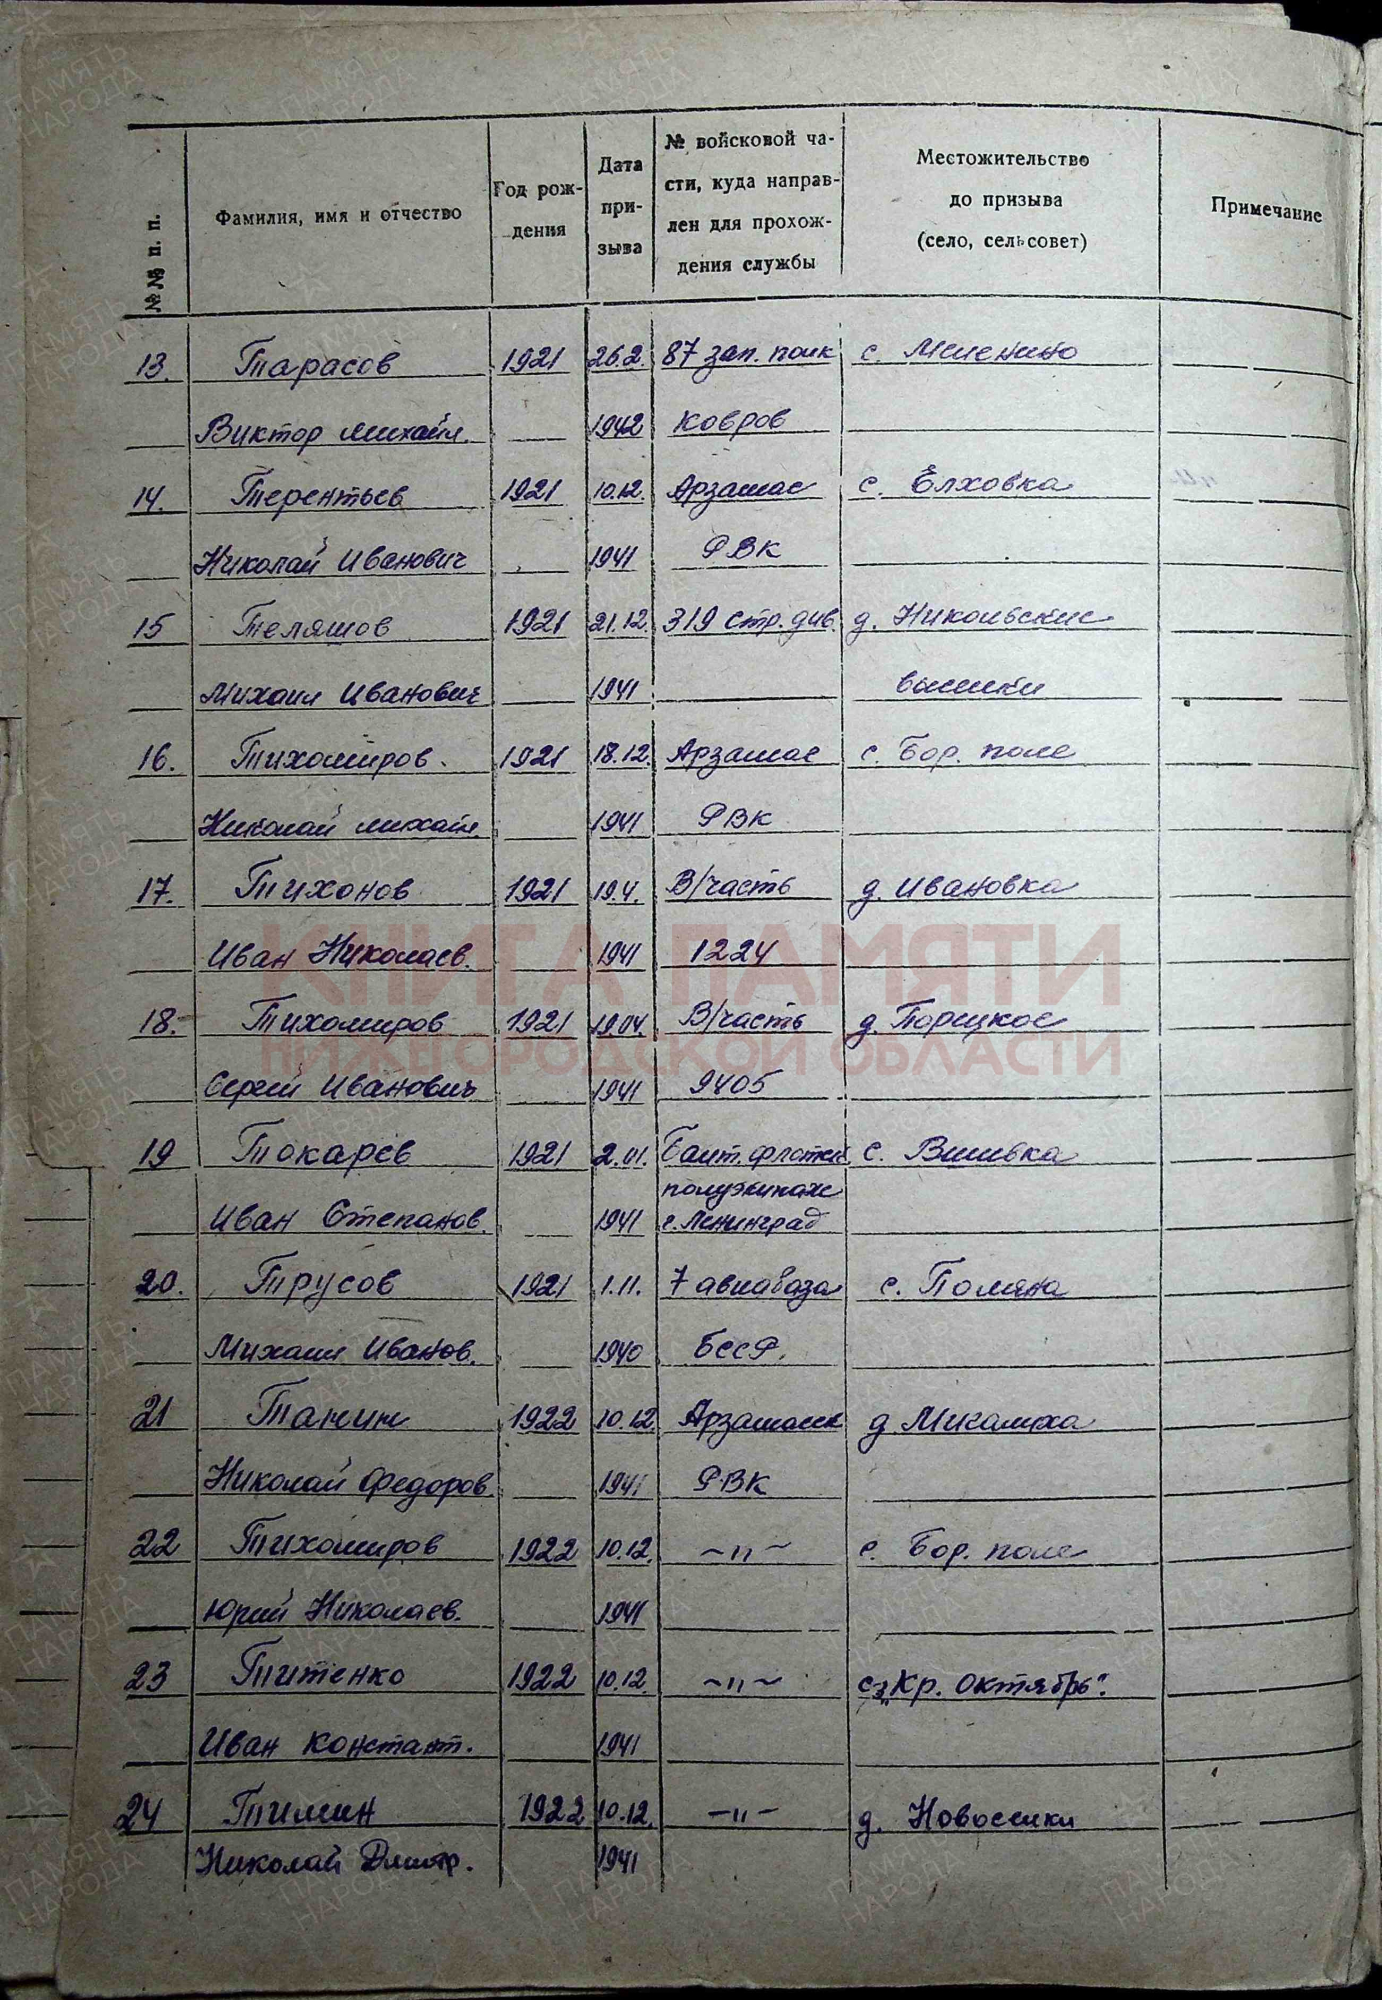 №№ п. п.
Фамилия, имя и отчество
Год рож-
дения
Дата
при-
зыва
№ войсковой ча-
сти, куда направ-
лен для прохож-
дения службы
Местожительство
до призыва
(село, сельсовет)
Примечание
13. Тарасов 1921 26.2. 87 зап. полк с.
Виктор Михайл. 1942 Ковров
14. Терентьев 1921 10.12. Арзамас с. Елховка
Николай Иванович 1941 РВК
15 Теляшов 1921 21.12. 319 стр. див. д. Никольские
Михаил Иванович 1941 выселки
16. Тихомиров 1921 18.12. Арзамас с. Бор. поле
Николай Михайл. 1941 РВК
17. Тихонов 1921 19.4. В/часть д. Ивановка
Иван Николаев. 1941 1224
18. Тихомиров 1921 19.04. В/часть д. Порецкое
Сергей Иванович 1941 9405
19 Токарев 1921 2.01. Балт. флотск. с.
полуэкипаж
Иван Степанов. 1941 г. Ленинград
20. Трусов 1921 1.11. 7 авиабаза с. Поляна
Михаил Иванов. 1940 БССР.
21 Танин 1922 10.12. Арзамасск д.
Николай Федоров. 1941 РВК
22 Тихомиров 1922 10.12. -"- с. Бор. поле
Юрий Николаев. 1941
23 Титенко 1922 10.12. -"- сз „Кр. Октябрь".
Иван Констант. 1941
24 Тимин 1922 10.12. -"- д. Новоселки
Николай Дмитр. 1941
КНИГА ПАМЯТИ
НИЖЕГОРОДСКОЙ ОБЛАСТИ
ПАМЯТЬ
НАРОДА